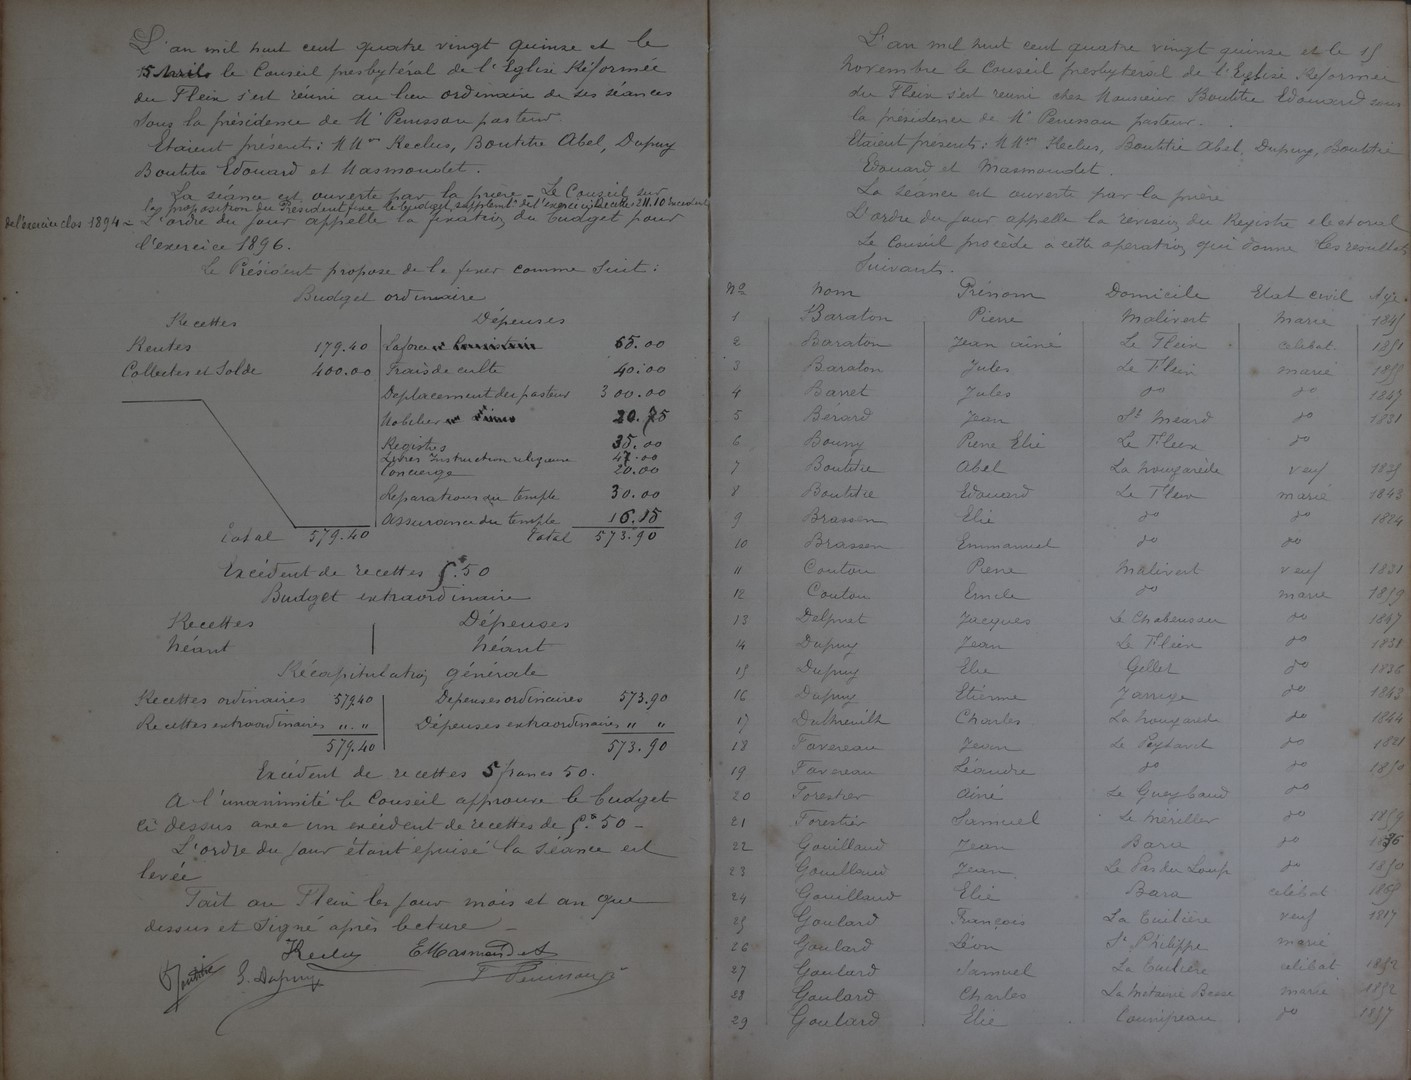 L'an mil huit cent quatre vingt quinze et le
15 Avril le Conseil presbytéral de l'Eglise Réformée
du Fleix s'est réuni au lieu ordinaire de ses séances
sous la présidence de Mr Penissou pasteur.
Etaient présents: MMrs Reclus, Boutitie Abel, Dupuy
Boutitie Edouard et Masmondet.
La séance est ouverte par la prière - Le Conseil sur
la proposition du Président fixe le budget supplémt de l'exercice 211.10 excédent
de l'exercice clos 1894 -
L'ordre du jour appelle la fixation du budget pour
l'exercice 1896.
Le Président propose de le fixer comme suit:
Budget ordinaire
Recettes Dépenses
Rentes 179.40 65.00
Collectes et Solde 400.00 Frais de culte 40.00
Déplacement du pasteur 300.00
Mobilier 20.75
Registres 35.00
Livres Instruction religieuse 47.00
Concierge 20.00
Réparations au temple 30.00
Assurance du temple 16.15
Total 579.40 Total 573.90
Excédent de recettes 5f.50
Budget extraordinaire
Recettes Dépenses
Néant Néant
Récapitulation générale
Recettes ordinaires 579.40 Dépenses ordinaires 573.90
Recettes extraordinaires " . " Dépenses extraordinaires " "
579.40 573.90
Excédent de recettes 5 francs 50.
A l'unanimité le Conseil approuve le budget
ci dessus avec un excédent de recettes de 5f.50 -
L'ordre du jour étant épuisé la séance est
levée
Fait au Fleix les jour mois et an que
dessus et signé après lecture -
Reclus E Masmondet
Boutitie E. Dupuy F Penissou
L'an mil huit cent quatre vingt quinze et le 15
Novembre le Conseil presbytéral de l'Eglise Réformée
du Fleix s'est réuni chez Monsieur Boutitie Edouard sous
la présidence de Mr Penissou pasteur.
Etaient présents: MMrs Reclus, Boutitie Abel, Dupuy, Boutitie
Edouard et Masmondet.
La séance est ouverte par la prière
L'ordre du jour appelle la revision du Registre electoral
Le Conseil procède a cette operation qui donne les resultats
Suivants.
No Nom Prénom Domicile Etat civil Age
1 Baraton Pierre Malivert marié 1845
2 Baraton Jean ainé Le Fleix célibat. 1851
3 Baraton Jules Le Fleix marié 1859
4 Barret Jules do do 1847
5 Bérard Jean St Méard do 1831
6 Bouny Pierre Elie Le Fleix do
7 Boutitie Abel La Nougarède veuf 1839
8 Boutitie Edouard Le Fleix marié 1843
9 Brassem Elie do do 1824
10 Brassem Emmanuel do do
11 Coutou Pierre Malivert veuf 1831
12 Coutou Emile do marié 1859
13 Delpuet Jacques Le Chabensau do 1847
14 Dupuy Jean Le Fleix do 1831
15 Dupuy Elie Gellet do 1836
16 Dupuy Etienne Jarrige do 1843
17 Charles La Nougarède do 1844
18 Favereau Jean Le Peytavit do 1821
19 Favereau Léandre do do 1850
20 Forestier Aîné do
21 Forestier Samuel Le Mériller do 1859
22 Gouilland Jean Bara do
23 Gouilland Jean Le Pas du Loup do 1850
24 Gouilland Elie Bara célibat 1859
25 Goulard François La Tuilière veuf 1817
26 Goulard Léon St Philippe marié
27 Goulard Samuel La Tuilière célibat 1852
28 Goulard Charles La Métairie Basse marié 1852
29 Goulard Elie do 1857